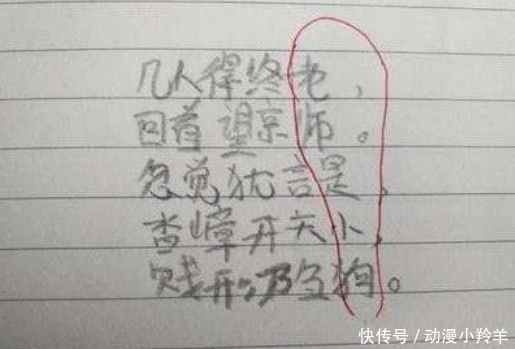 几人得终老，
回首望京师。
忽觉犹言是，
杳嶂开天小，
贱形乃刍狗。
快传号／动漫小羚羊